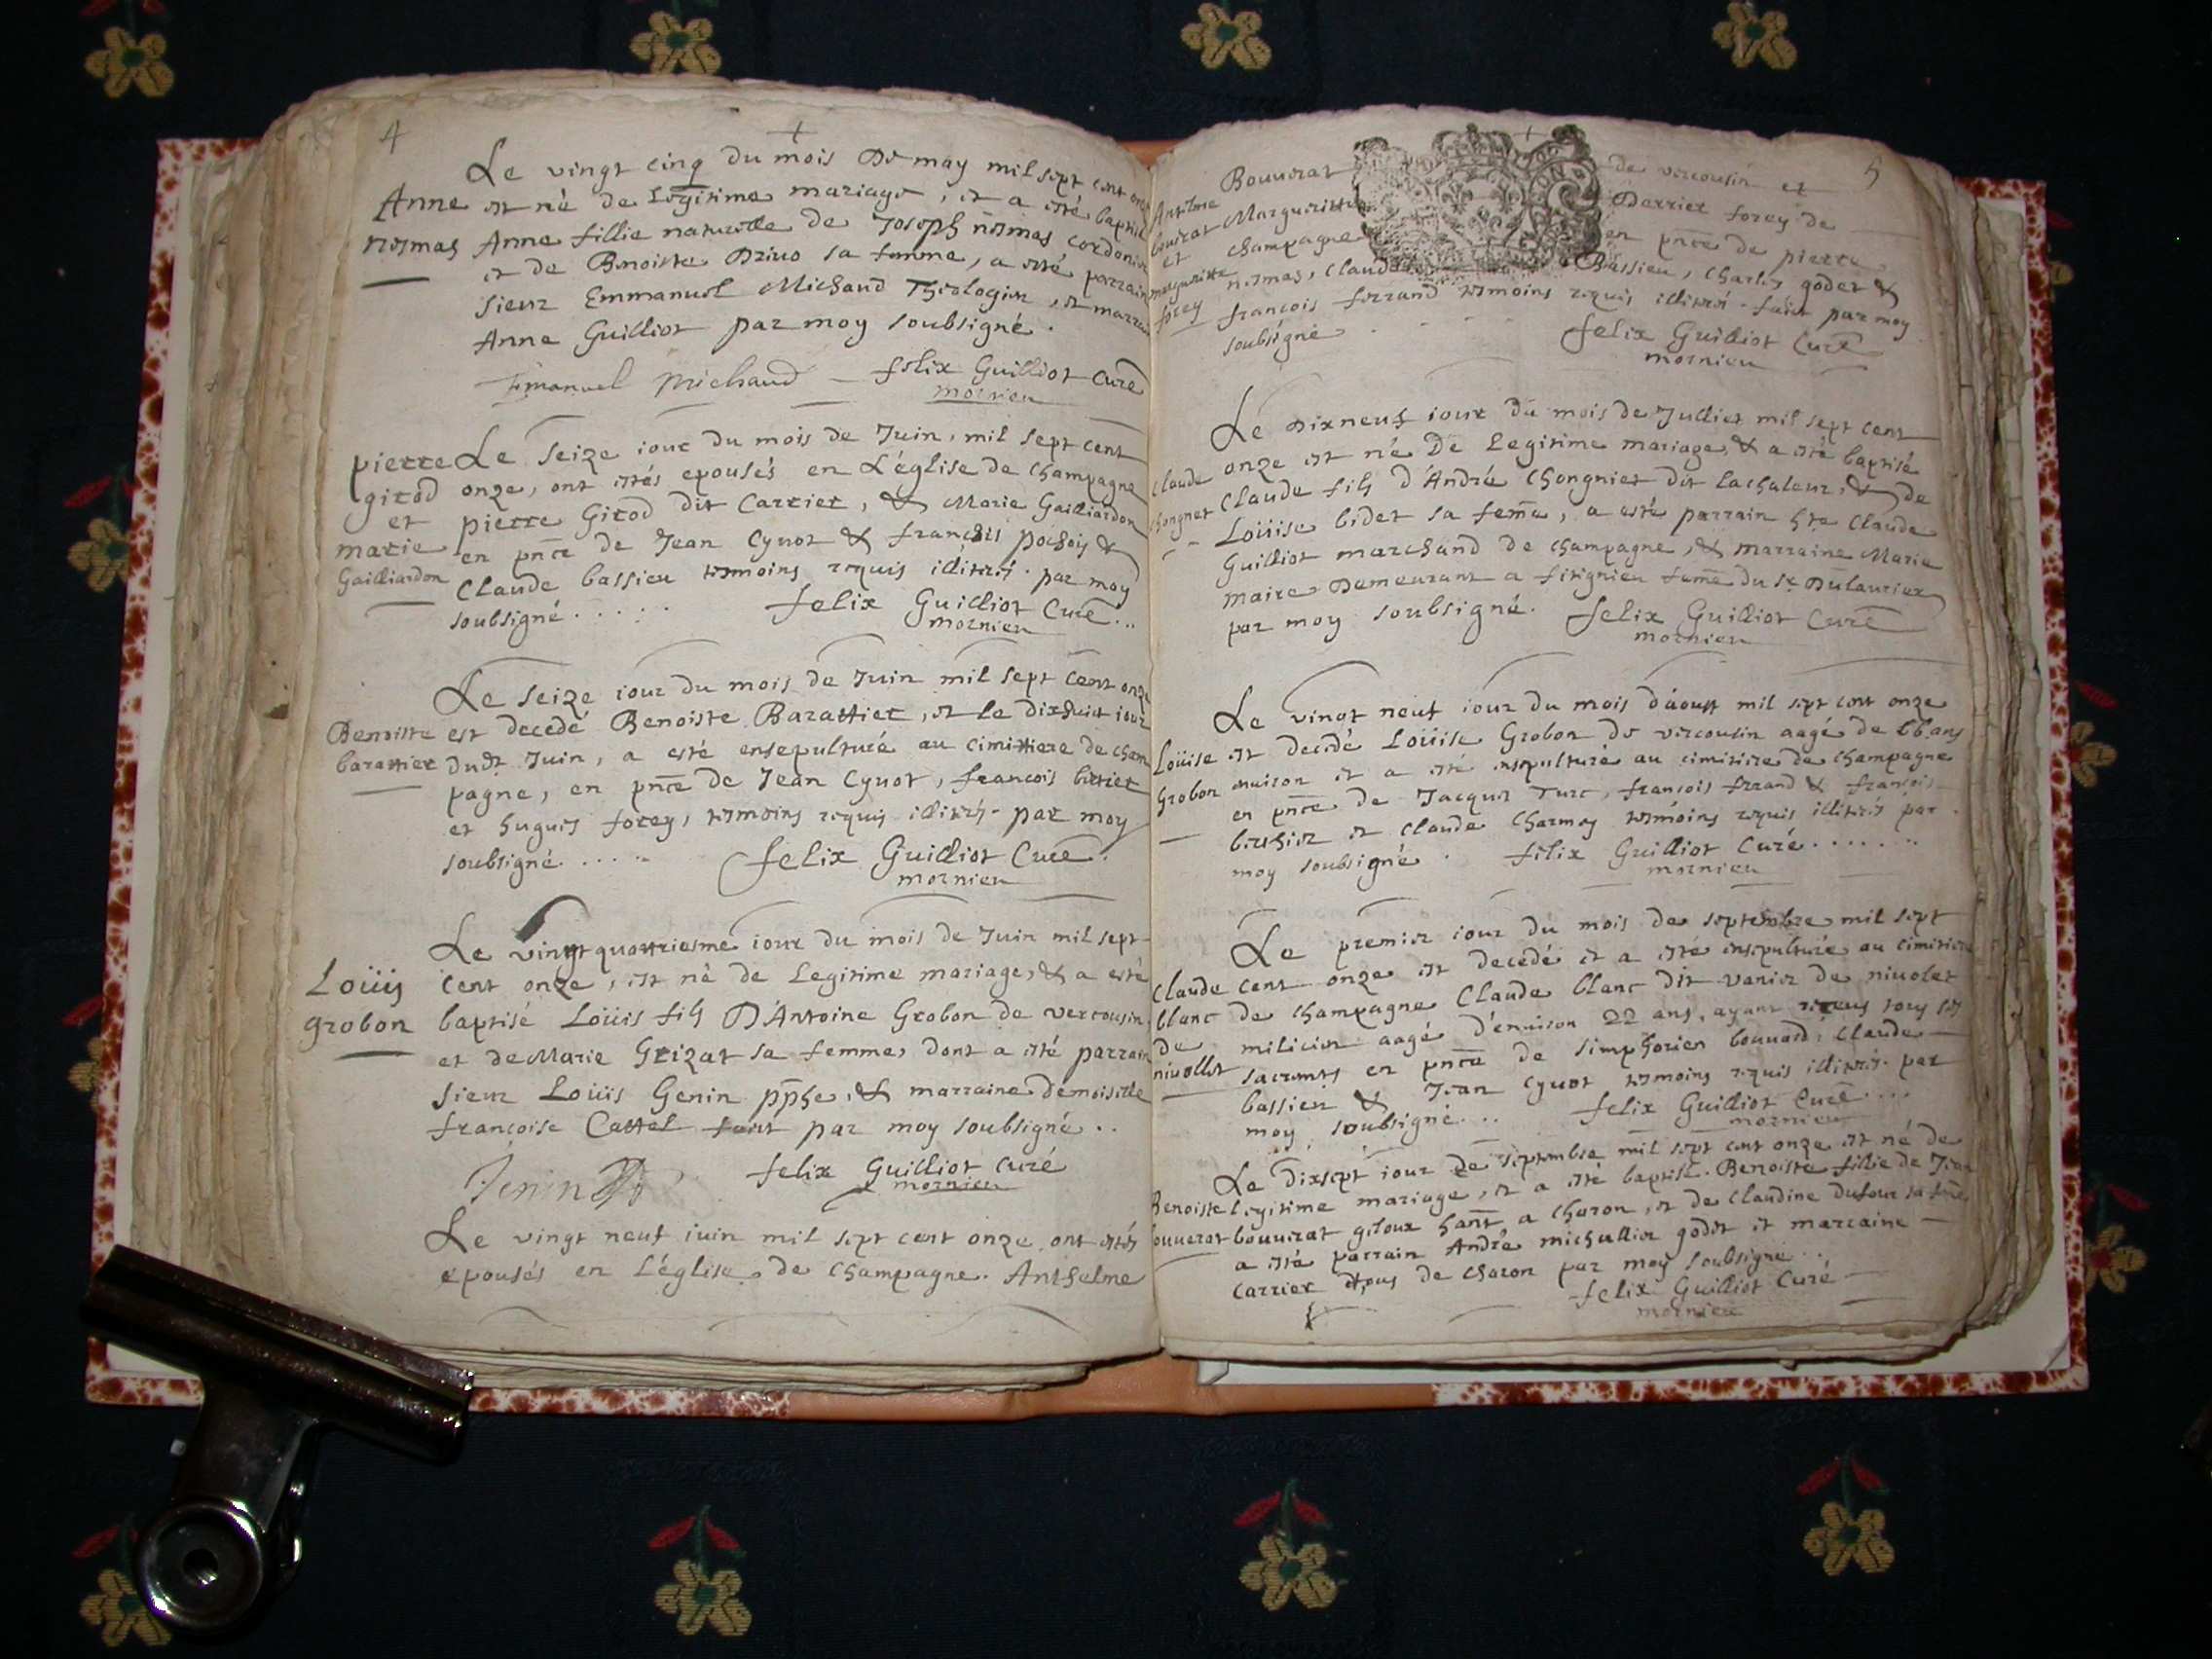 4
Le vingt cinq du mois De may mil sept cent onze
Anne est né de Legitime mariage, et a esté baptisé
nesmas Anne fillie naturelle de Joseph nesmas cordonier
et de Benoiste sa femme, a esté parrain
sieur Emmanuel Michaud Theologien, et marraine
Anne Guilliot par moy soubsigné.
Emanuel Michaud felix Guilliot Curé
mornieu
pierre Le seize iour du mois de Juin, mil sept cent
girod onze, ont estés epousés en L'église de Champagne
et pierre Girod dit Carrier, & Marie Gailliardon
marie en pnce de Jean Cynot & françois pochois &
Gailliardon Claude bassieu tesmoins requis illiterés. par moy
soubsigné..... felix Guilliot Curé...
mornieu
Le seize iour du mois de Juin mil sept cent onze
Benoiste est decedé Benoiste Barattier, et le dixhuict iour
barattier dudt Juin, a esté ensepulturé au cimittiere de cham
pagne, en pnce de Jean Cynot, francois
et hugues forey, tesmoins requis illiterés. par moy
soubsigné..... felix Guilliot Curé.
mornieu
Le vingt quattriesme iour du mois de Juin mil sept
Loüis Cent onze, est né de Legitime mariage, & a esté
grobon baptisé Loüis fils D'Antoine Grobon de vercousin
et de Marie Grizat sa femme, dont a esté parrain
sieur Loüis Genin pphe, & marraine demoiselle
françoise Cattel faict par moy soubsigné..
Jenin felix Guilliot curé
mornieu
Le vingt neuf iuin mil sept cent onze ont estés
epousés en L'église de Champagne. Anthelme
5
Bouverat de vercousin et
Anthelme
bouverat Margueritte Derrier forey de
et champagne en pnce de pierre
marguerite nesmas, Claude Bassieu, Charles godet &
forey françois ferrand tesmoins requis illiterés. faict par moy
soubsigné felix Guilliot Curé
mornieu
Le Dixneuf iour du mois de Julliet mil sept cent
Claude onze est né De Legitime mariage, & a esté baptisé
Chongnet Claude fils d'André Chongniet dit lachaleur, & de
Loüise bidet sa feme, a esté parrain hte Claude
Guilliot marchand de champagne, & marraine Marie
maire Demeurant a fitignieu feme du sr Dulaurier
par moy soubsigné. felix Guilliot Curé
mornieu
Le vingt neuf iour du mois d'aoust mil sept cent onze
Loüise est decedé Loüise Grobon de vercousin aagé de 66 ans
Grobon enuiron et a esté ensepulturé au cimitiere de Champagne
en pnce de Jacques Turc, françois ferrand & françois
et Claude Charmoy tesmoins requis illiterés par
moy soubsigné. felix Guilliot Curé.......
mornieu
Le premier iour du mois de septembre mil sept
Claude cent onze est decedé et a esté ensepulturé au cimitiere
blanc de Champagne Claude blanc dit vanier de niuolet
de milicien aagé d'enuiron 22 ans, ayant receus tous ses
niuollet sacrements en pnce de simphorien bouuard, Claude
bassieu & Jean Cynot tesmoins requis illiterés. par
moy soubsigné... felix Guilliot Curé....
mornieu
Le dixsept iour de septembre mil sept cent onze est né de
Benoiste legitime mariage, et a esté baptisé. Benoiste fillie de Jean
bouuerat bouuerat giloux hant a charon, et de Claudine dufour sa feme
a esté parrain André michallier godet et marraine
Carrier tous de charon par moy soubsigné...
felix Guilliot Curé
mornieu